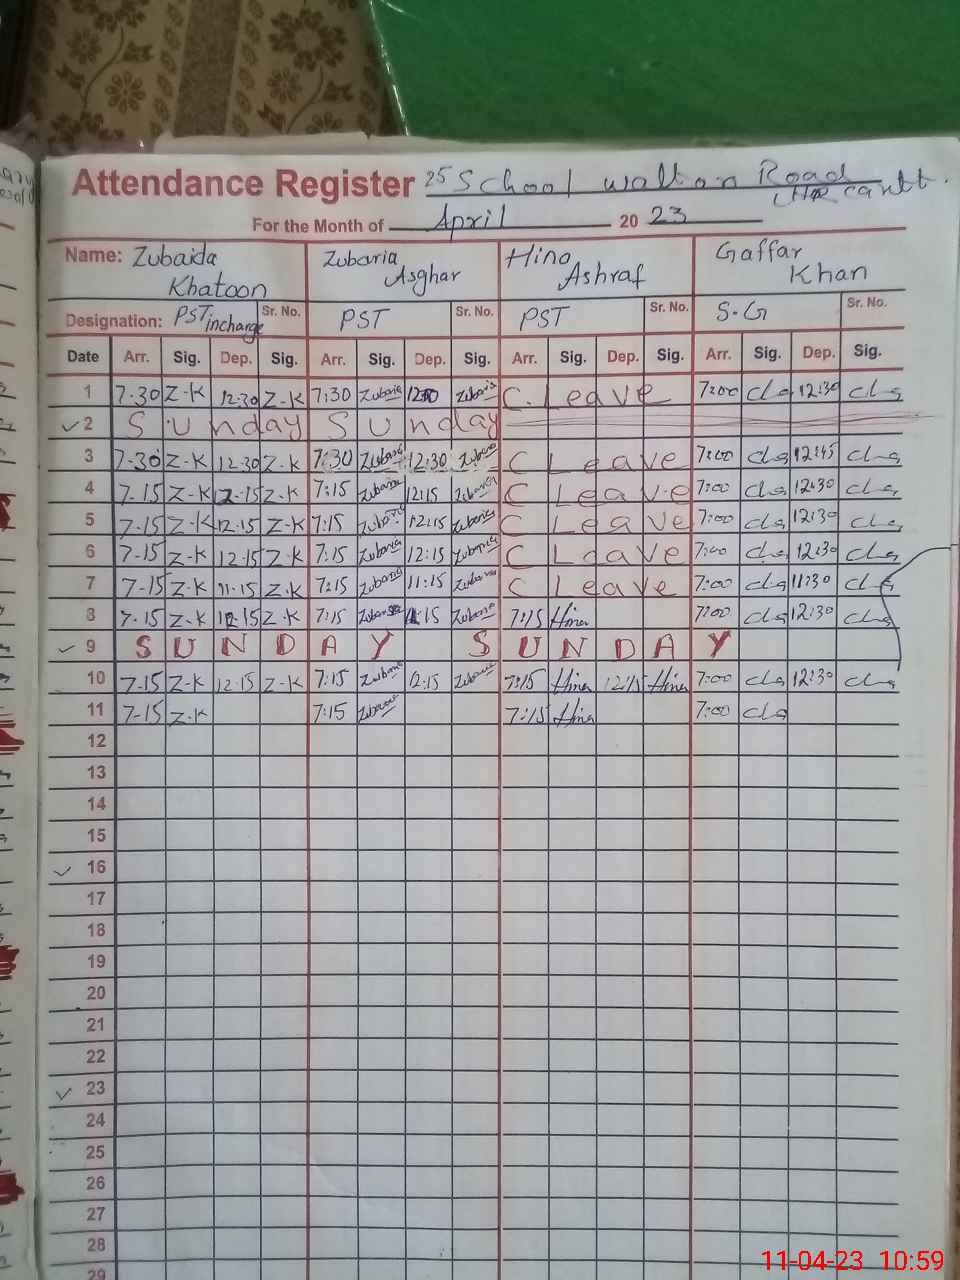 Attendance Register 25 School Walton Road
Cantt.
For the Month of April 20 23
Name: Zubaida Khatoon Zubaria Asghar Hina Ashraf Gaffar Khan
Designation: PST incharge Sr. No. PST Sr. No. PST Sr. No. S.G Sr. No.
Date Arr. Sig. Dep. Sig. Arr. Sig. Dep. Sig. Arr. Sig. Dep. Sig. Arr. Sig. Dep. Sig.
1 7.30 Z-K 12.30 Z-K 7:30 Zubaria Zubaria C. Leave 7:00 12:30
2 Sunday Sunday
3 7-30 Z-K 12.30 Z-K 7:30 Zubaria 12:30 Zubaria C Leave 7:00 12:45
4 7-15 Z-K 12-15 Z-K 7:15 Zubaria 12:15 Zubaria C Leave 7:00 12:30
5 7-15 Z-K 12-15 Z-K 7:15 Zubaria 12:15 Zubaria C Leave 7:00 12:30
6 7-15 Z-K 12-15 Z-K 7:15 Zubaria 12:15 Zubaria C Leave 7:00 12:30
7 7-15 Z-K 11-15 Z-K 7:15 Zubaria 11:15 Zubaria C Leave 7:00 11:30
8 7-15 Z-K 12-15 Z-K 7:15 Zubaria Zubaria 7:15 Hina 7:00 12:30
9 SUNDAY SUNDAY
10 7-15 Z-K 12-15 Z-K 7:15 Zubaria 12:15 Zubaria 7:15 Hina 12:15 Hina 7:00 12:30
11 7-15 Z-K 7:15 Zubaria 7:15 Hina 7:00
12
13
14
15
16
17
18
19
20
21
22
23
24
25
26
27
28
29
11-04-23 10:59